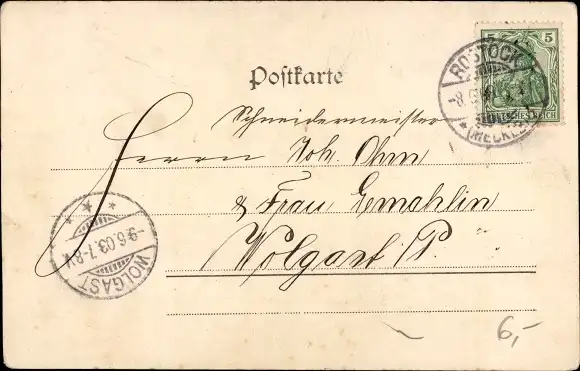 5 5
ROSTOCK
(MECKLB
Postkarte
Schneidermeister
Herrn Joh. Ohm
& Frau Gemahlin
Wolgast i/P.
-9.6.03.7-8V.
WOLGAST
6,-